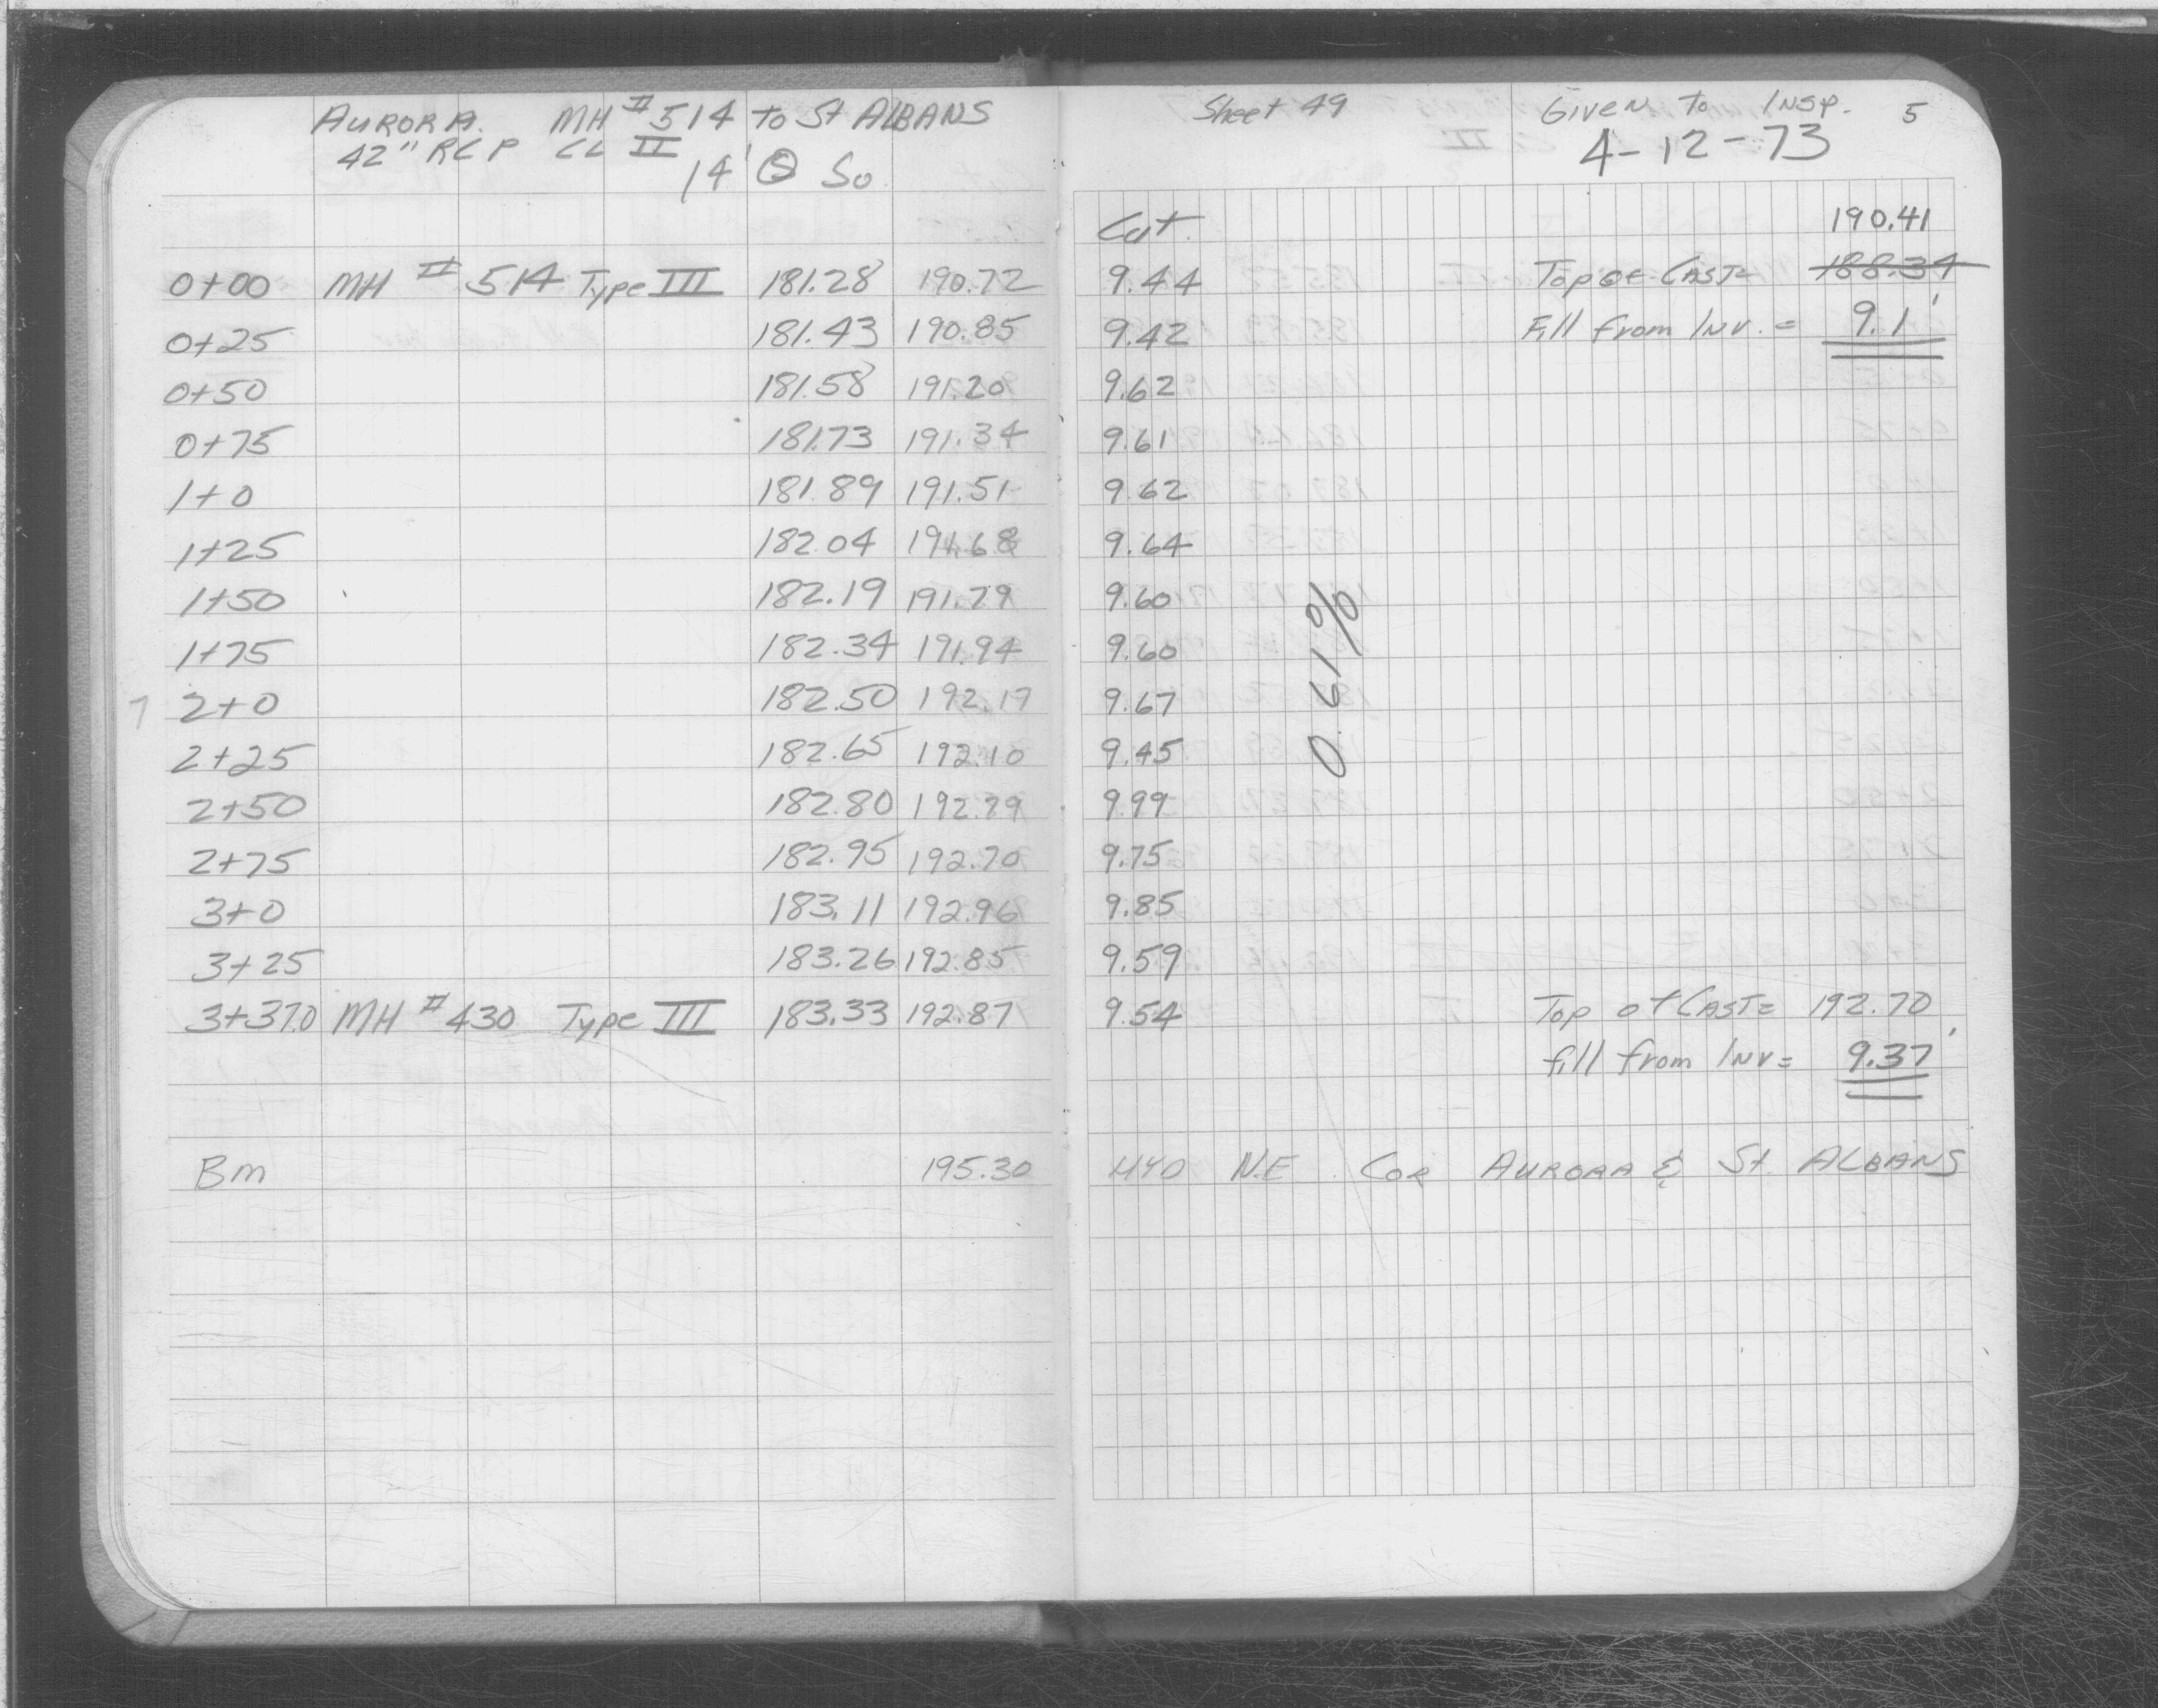 AURORA. MH #514 to St ALBANS
42" RCP CL II
14' @ So
Sheet 49
Given To Insp. 5
4-12-73
Cut.
190.41
0+00 MH #514 Type III 181.28 190.72 9.44 Top of Cast= 188.34
0+25 181.43 190.85 9.42 Fill from Inv. = 9.1'
0+50 181.58 191.20 9.62
0+75 181.73 191.34 9.61
1+0 181.89 191.51 9.62
1+25 182.04 191.68 9.64
1+50 182.19 191.79 9.60
1+75 182.34 191.94 9.60
2+0 182.50 192.17 9.67
2+25 182.65 192.10 9.45
2+50 182.80 192.79 9.99
2+75 182.95 192.70 9.75
3+0 183.11 192.96 9.85
3+25 183.26 192.85 9.59
3+37.0 MH #430 Type III 183.33 192.87 9.54 Top of Cast= 192.70
0.61%
fill from Inv= 9.37'
Bm 195.30 HYD N.E. Cor AURORA & St. ALBANS